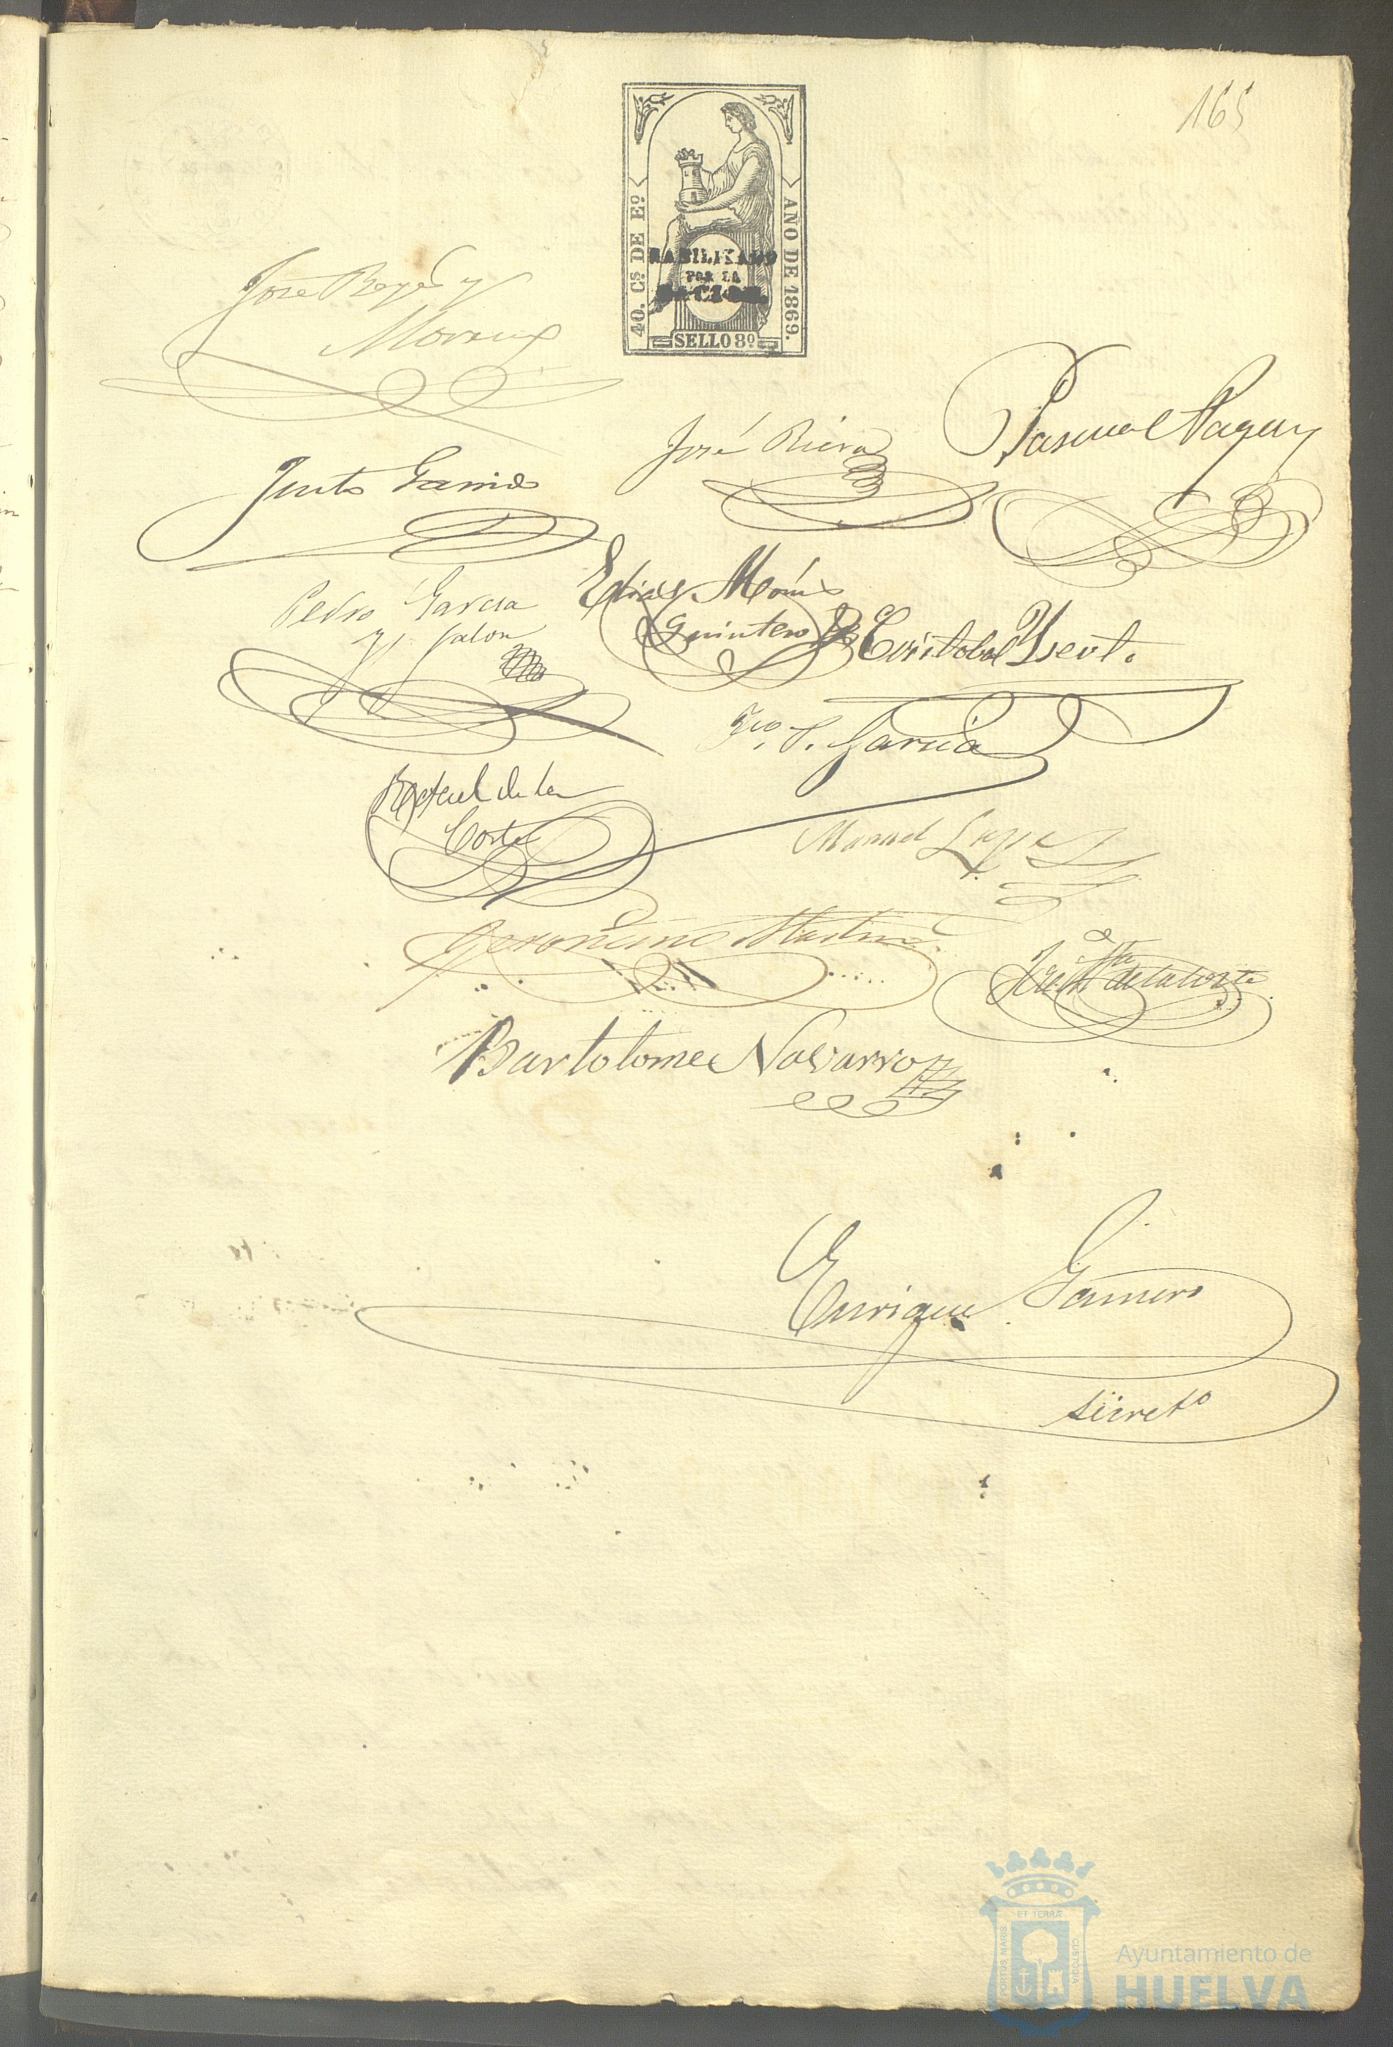 165
40. Cs DE Eo
AÑO DE 1869.
HABILITADO
POR LA
NACION.
SELLO 8º
José Reyes y
Moreno
Pascual
José Riera
Justo Garrido
Pedro Garcia
y Jalon
Elias
Quintero
Cristobal
Fco. P. Garcia
Rafael de la
Corte
Manuel Lopez
Geronimo Martin
de la Corte
Bartolome Navarro
Enrique Gamero
Secreto
ET TERRÆ
PORTUS MARIS
CUSTODIA
Ayuntamiento de
HUELVA